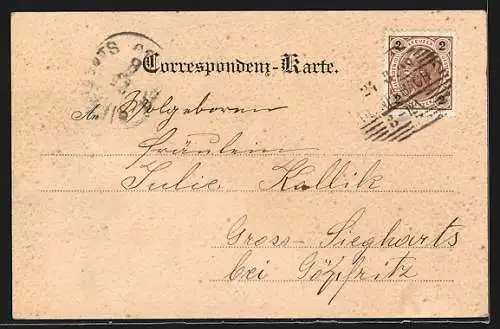 Correspondenz-Karte.
2 KREUZER 2
An Wolgeboren
Fräulein
Julie Kallik
Gross-Siegharts
bei Göpfritz